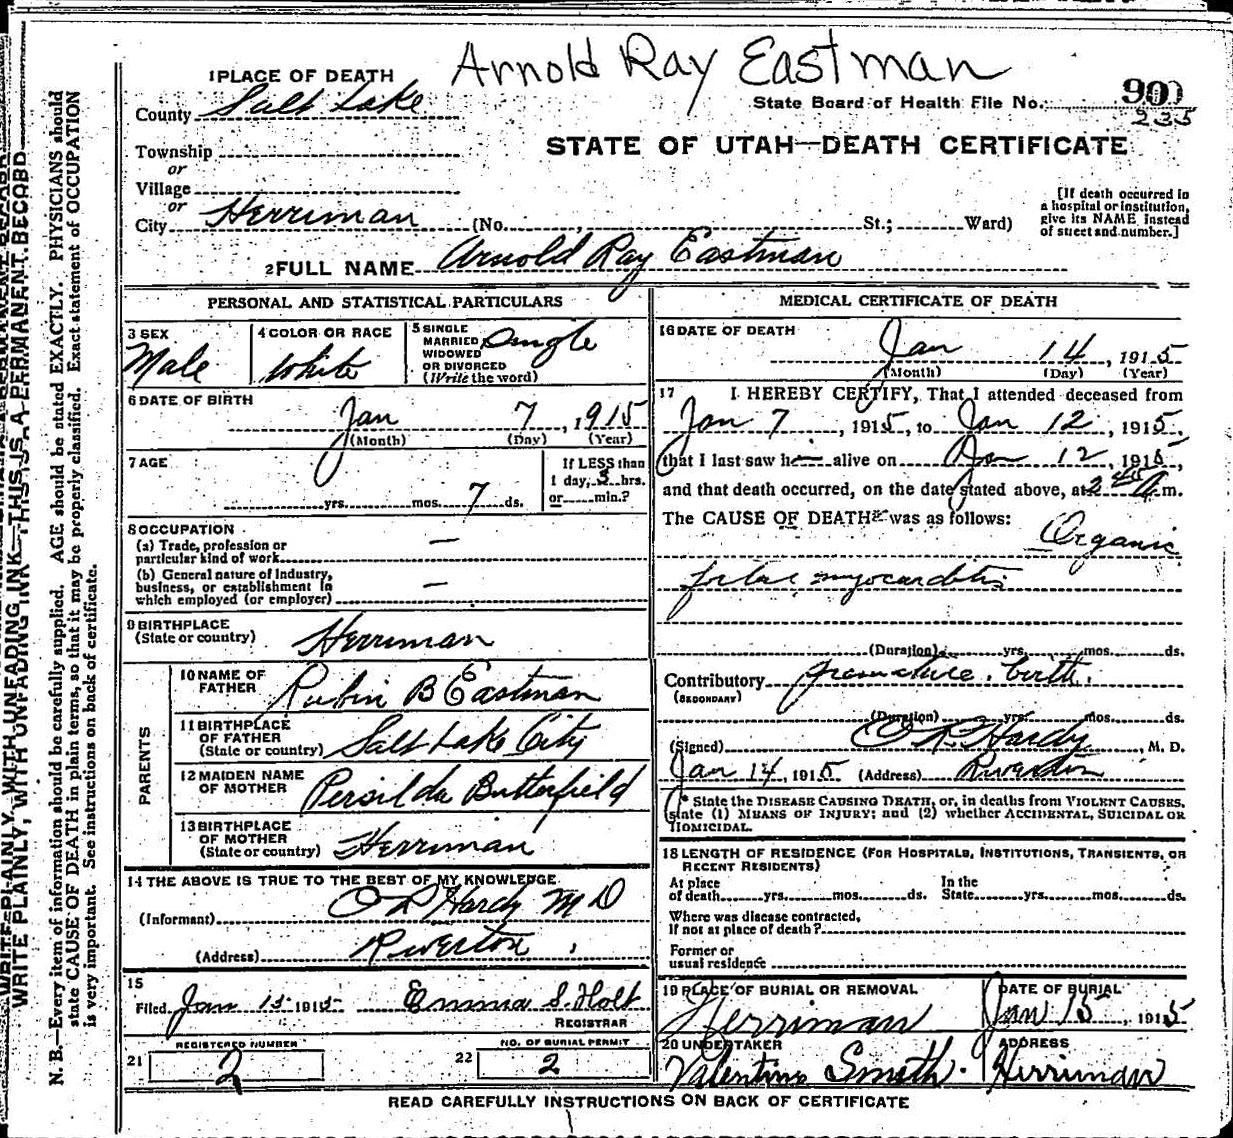 Arnold Ray Eastman
1 PLACE OF DEATH
County Salt Lake
State Board of Health File No. 900
235
STATE OF UTAH—DEATH CERTIFICATE
Township
or
Village
or
City Herriman (No. , St.; Ward)
[If death occurred in
a hospital or institution,
give its NAME instead
of street and number.]
2 FULL NAME Arnold Ray Eastman
PERSONAL AND STATISTICAL PARTICULARS
3 SEX
Male
4 COLOR OR RACE
White
5 SINGLE
MARRIED
WIDOWED
OR DIVORCED
(Write the word)
Single
6 DATE OF BIRTH
Jan 7, 1915
(Month) (Day) (Year)
7 AGE
yrs. mos. 7 ds.
If LESS than
1 day, 3 hrs.
or min.?
8 OCCUPATION
(a) Trade, profession or
particular kind of work —
(b) General nature of industry,
business, or establishment in
which employed (or employer) —
9 BIRTHPLACE
(State or country) Herriman
PARENTS
10 NAME OF
FATHER Rubin B Eastman
11 BIRTHPLACE
OF FATHER
(State or country) Salt Lake City
12 MAIDEN NAME
OF MOTHER Persilda Butterfield
13 BIRTHPLACE
OF MOTHER
(State or country) Herriman
14 THE ABOVE IS TRUE TO THE BEST OF MY KNOWLEDGE
(Informant) O R Hardy M D
(Address) Riverton,
15
Filed Jan 15 1915 Emma S. Holt
REGISTRAR
REGISTERED NUMBER
21 2
NO. OF BURIAL PERMIT
22 2
MEDICAL CERTIFICATE OF DEATH
16 DATE OF DEATH
Jan 14, 1915
(Month) (Day) (Year)
17 I HEREBY CERTIFY, That I attended deceased from
Jan 7, 1915, to Jan 12, 1915,
that I last saw h alive on Jan 12, 1915,
and that death occurred, on the date stated above, at 2 A m.
The CAUSE OF DEATH* was as follows:
Organic
foetal myocarditis
(Duration) yrs. mos. ds.
Contributory premature birth.
(SECONDARY)
(Duration) yrs. mos. ds.
(Signed) O R Hardy, M. D.
Jan 14, 1915 (Address) Riverton
* State the DISEASE CAUSING DEATH, or, in deaths from VIOLENT CAUSES,
state (1) MEANS OF INJURY; and (2) whether ACCIDENTAL, SUICIDAL OR
HOMICIDAL.
18 LENGTH OF RESIDENCE (FOR HOSPITALS, INSTITUTIONS, TRANSIENTS, OR
RECENT RESIDENTS)
At place In the
of death yrs. mos. ds. State yrs. mos. ds.
Where was disease contracted,
If not at place of death?
Former or
usual residence
19 PLACE OF BURIAL OR REMOVAL
Herriman
DATE OF BURIAL
Jan 15, 1915
20 UNDERTAKER
Valentine Smith.
ADDRESS
Herriman
READ CAREFULLY INSTRUCTIONS ON BACK OF CERTIFICATE
WRITE PLAINLY, WITH UNFADING INK—THIS IS A PERMANENT RECORD
N. B.—Every item of information should be carefully supplied. AGE should be stated EXACTLY. PHYSICIANS should
state CAUSE OF DEATH in plain terms, so that it may be properly classified. Exact statement of OCCUPATION
is very important. See instructions on back of certificate.